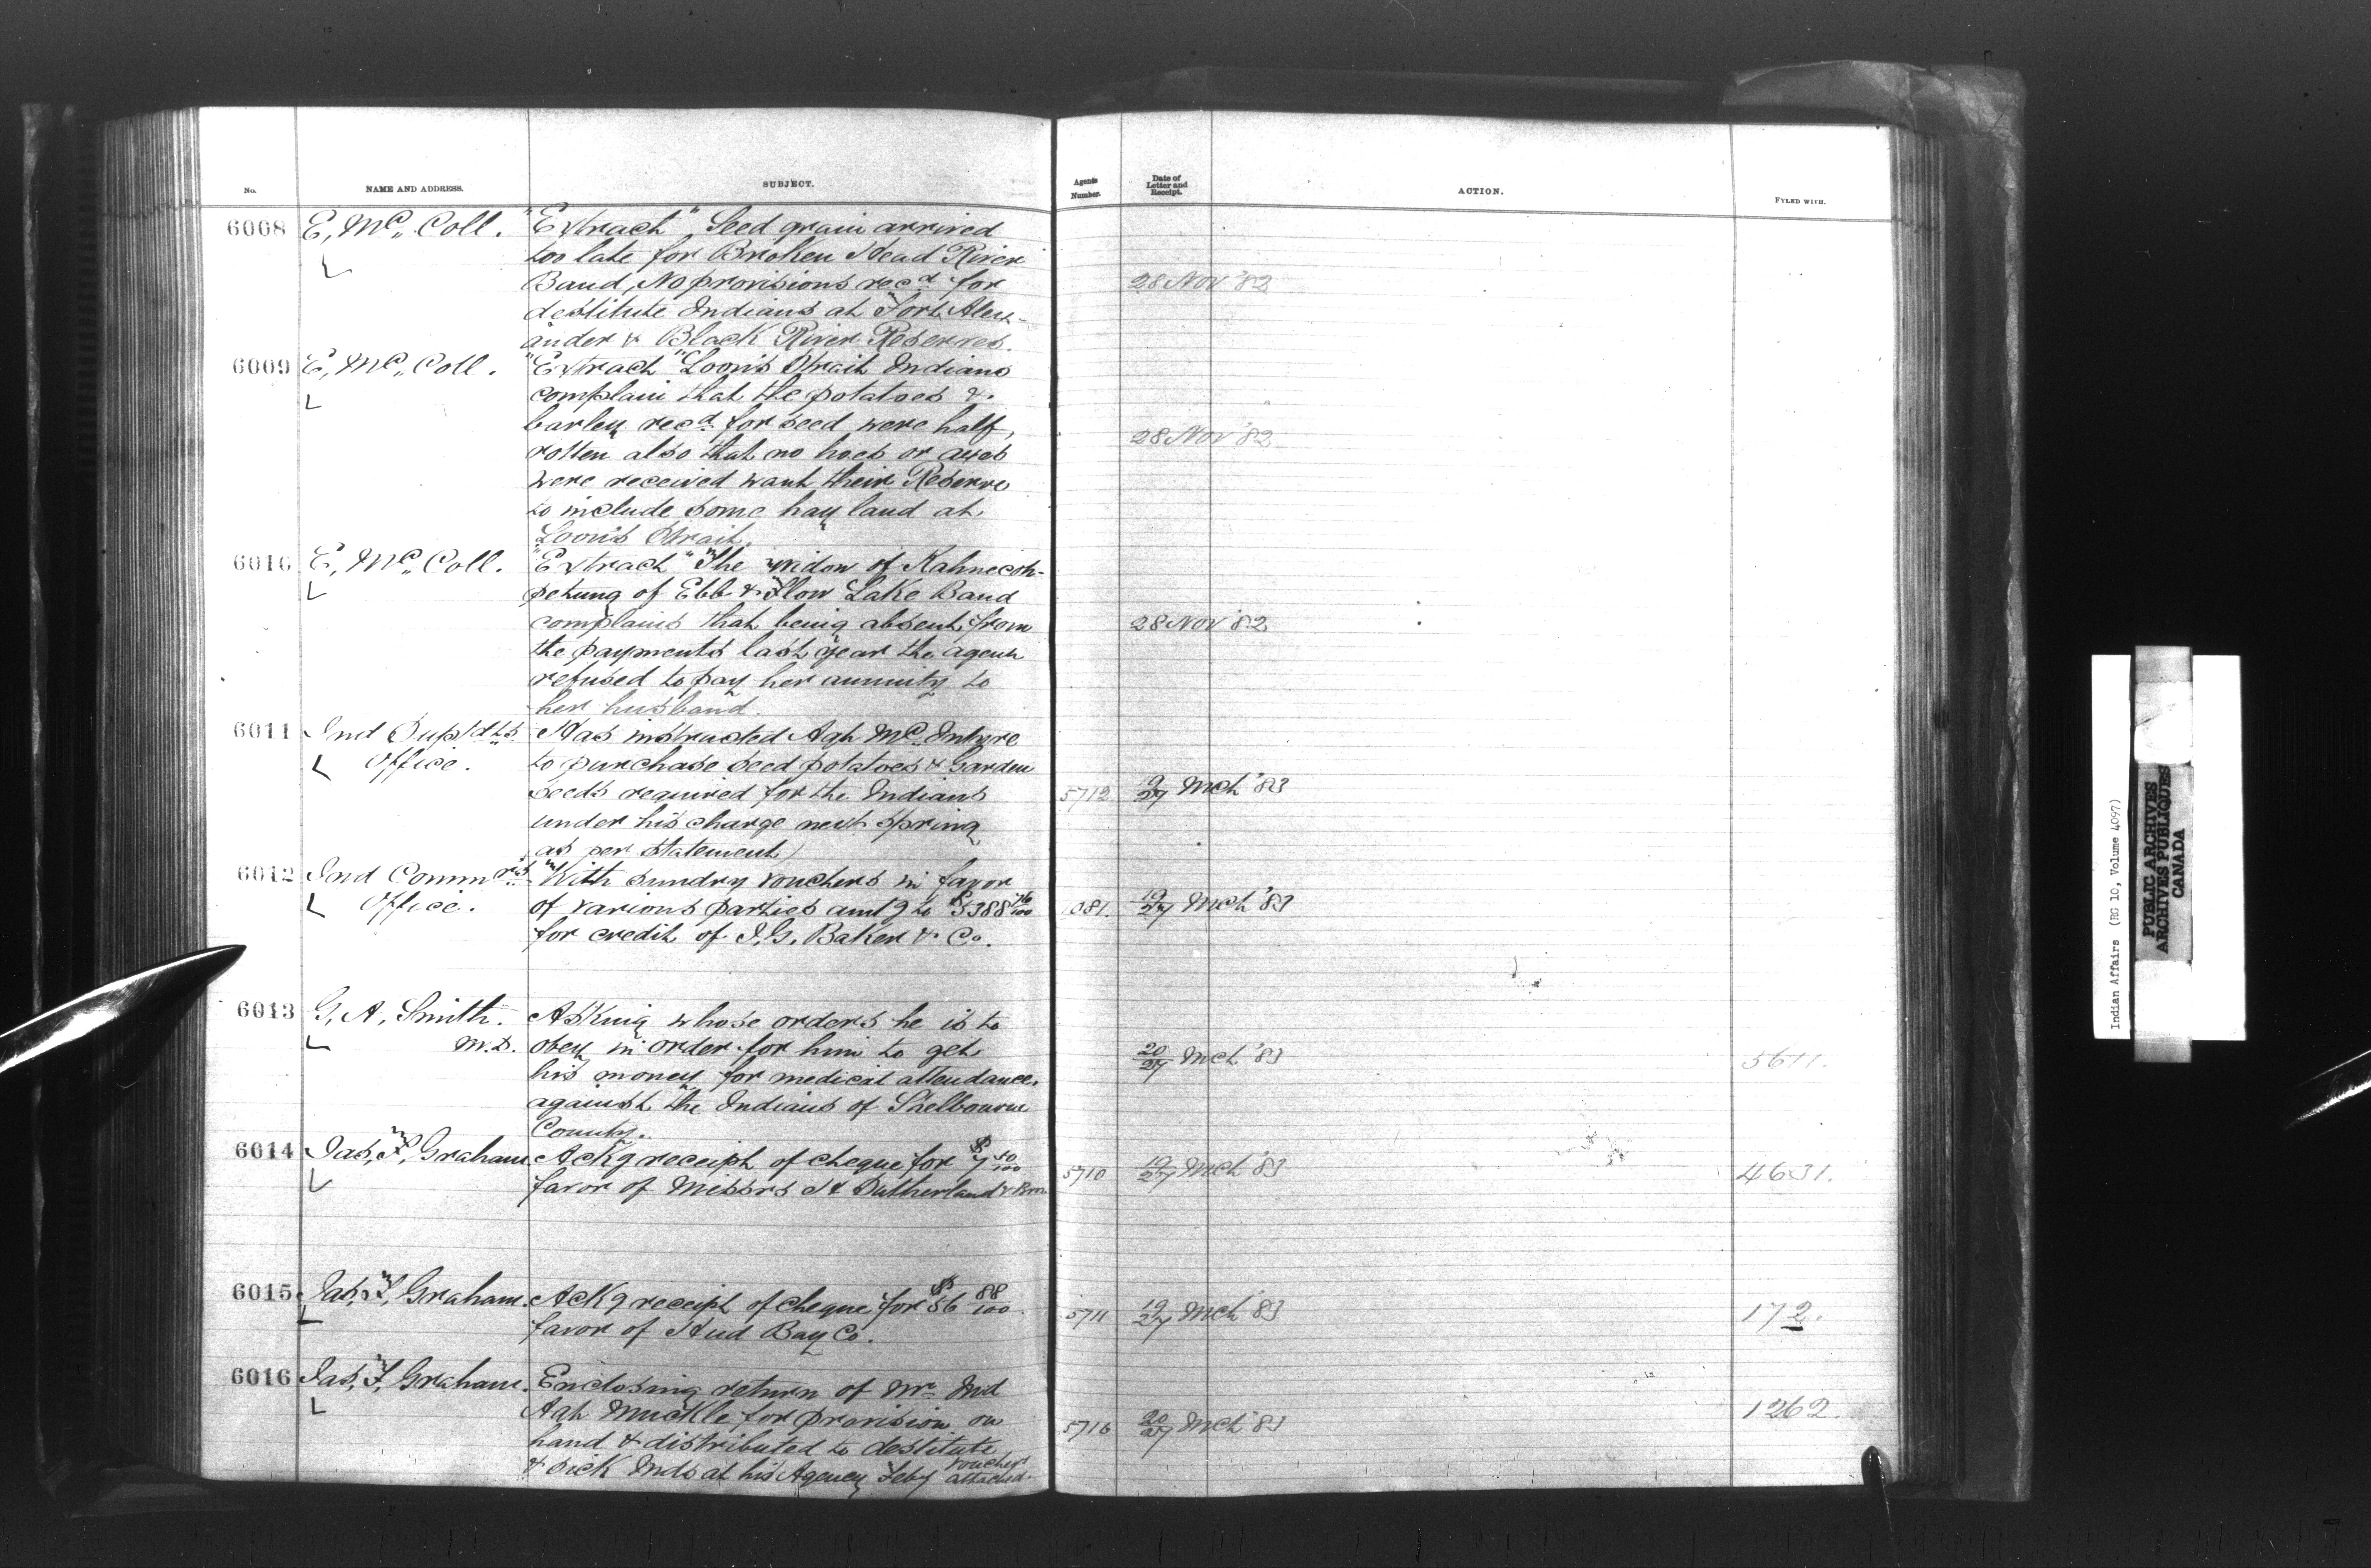 No. NAME AND ADDRESS. SUBJECT. Agents Number. Date of Letter and Receipt. ACTION. FYLED WITH.
6008 E, Mc Coll. "Extract" Seed grain arrived
too late for Broken Head River
Band, No provisions recd for 28 Nov '82
destitute Indians at Fort Alex-
ander & Black River Reserves.
6009 E, Mc Coll. "Extract" Loon's Strait Indians
complain that the potatoes &
barley recd for seed were half, 28 Nov '82
rotten also that no hoes or axes
were received want their Reserve
to include some hay land at
Loon's Strait.
6010 E, Mc Coll. "Extract" The widow of Kahnecoh-
petung of Ebb & Flow Lake Band
complains that being absent from 28 Nov '82
the payments last year the agent
refused to pay her annuity to
her husband.
6011 Ind Supdts Has instructed Agt Mc Intyre
Office. to purchase seed potatoes & Garden
seeds required for the Indians 5712 19/27 Mch '83
under his charge next spring
as per statement)
6012 Ind Commrs With sundry vouchers in favor
Office. of various parties amtg to $5388 76/100 1081. 19/27 Mch '83
for credit of I. G. Baker & Co.
6013 G. A. Smith. Asking whose orders he is to
M.D. obey in order for him to get 20/27 Mch '83 5611.
his money for medical attendance
against the Indians of Shelbourne
County.
6014 Jas, F, Graham. Ackg receipt of cheque for $7 50/100 5710 19/27 Mch '83 4631.
favor of Messrs H Sutherland & Bros
6015 Jas, F, Graham. Ackg receipt of cheque for $56 88/100 5711 19/27 Mch '83 172.
favor of Hud Bay Co.
6016 Jas, F, Graham. Enclosing return of Mr Ind
Agt Muckle for provision on 5716 20/27 Mch '83 1262.
hand & distributed to destitute
& sick Inds at his Agency Feby vouchers attached.
Indian Affairs (RG 10, Volume 4097)
PUBLIC ARCHIVES
ARCHIVES PUBLIQUES
CANADA